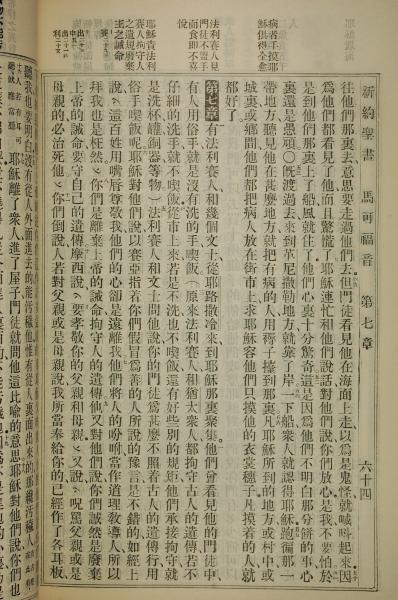 新約聖書　馬可福音　第七章　六十四
病者手摸耶
穌俱得全愈
往他們那裏去意思要走過他們去但門徒看見他在海面上走以爲是鬼怪就喊呌起來因
爲他們都看見了他而且驚慌了耶穌連忙和他們說話對他們說你們放心是我不要怕於
是到他們那裏上了船風就住了他們心裏十分驚奇這是因爲他們不明白那分餅的事心
裏還是愚頑○旣渡過去來到革尼撒勒地方就靠了岸一下船衆人就認得耶穌跑徧那一
帶地方聽見他在甚麽地方就把有病的人用褥子擡到那裏凡耶穌所到的地方或村中或
城裏或鄉間他們都把病人放在街市上求耶穌容他們只摸他的衣裳穗子凡摸着的人就
都好了
法利賽人見
門徒不盥手
而食卽不喜
悅
第七章　有法利賽人和幾個文士從耶路撒冷來到耶穌那裏聚集他們曾看見他的門徒中
有人用俗手就是沒有洗的手喫飯（原來法利賽人和猶太衆人都拘守古人的遺傳若不
仔細的洗手就不喫飯從市上來若是不洗也不喫飯還有好些別的規矩他們承接拘守就
是洗杯罐銅器等物）法利賽人和文士問他說你的門徒爲甚麽不照着古人的遺傳行用
耶穌責法利
賽人拘守人
之遺規廢棄
主之誡命
俗手喫飯呢耶穌對他們說以賽亞指着你們假冒爲善的人所說的豫言是不錯的如經上
說這百姓用嘴唇尊敬我他們的心卻是遠離我他們將人的吩咐當作道理教導人所以
拜我也是枉然你們是離棄上帝的誡命拘守人的遺傳又對他們說你們誠然是廢棄
上帝的誡命要守自己的遺傳摩西說要孝敬你的父親和母親又說咒罵父親或是
母親的必治死他你們倒說人若對父親或是母親說我所當奉給你的已經作了各耳板
聽我也要明白沒有從人外面進去的能汚穢人惟有從人裏面出來的那纔汚穢人
耶穌離了衆人進了屋子門徒就問他這比喻的意思耶穌對他們說你們也